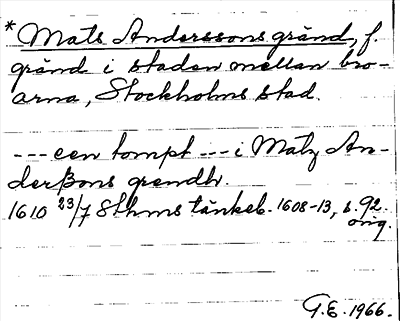 * Mats Anderssons gränd, f.
gränd i staden mellan bro-
arna, Stockholms stad.
--- een tompt --- i Matz An-
derßons grendh.
1610 23/7 Sthms tänkeb. 1608-13, s. 92.
orig.
G.E. 1966.